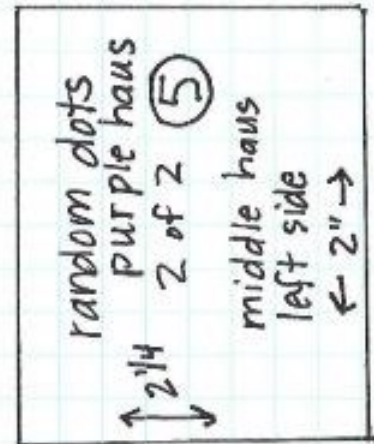 random dots
purple haus
2 of 2 ⑤
2 1/4
middle haus
left side
← 2" →